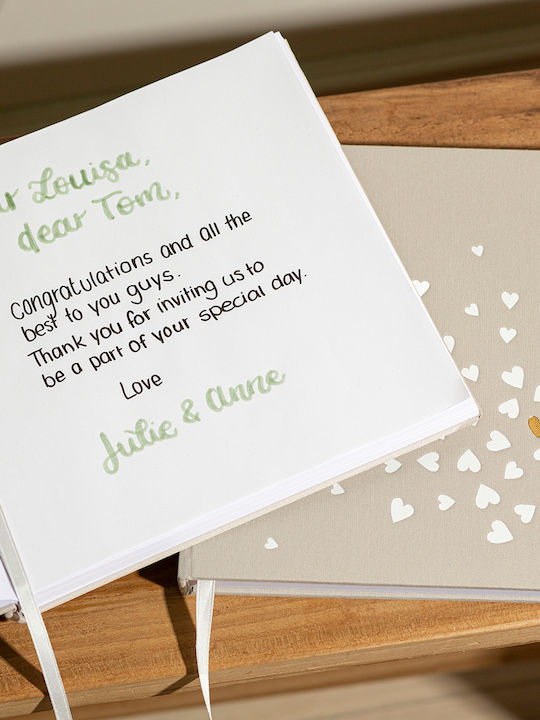 Louisa,
dear Tom,
Congratulations and all the
best to you guys.
Thank you for inviting us to
be a part of your special day.
Love
Julie & Anne